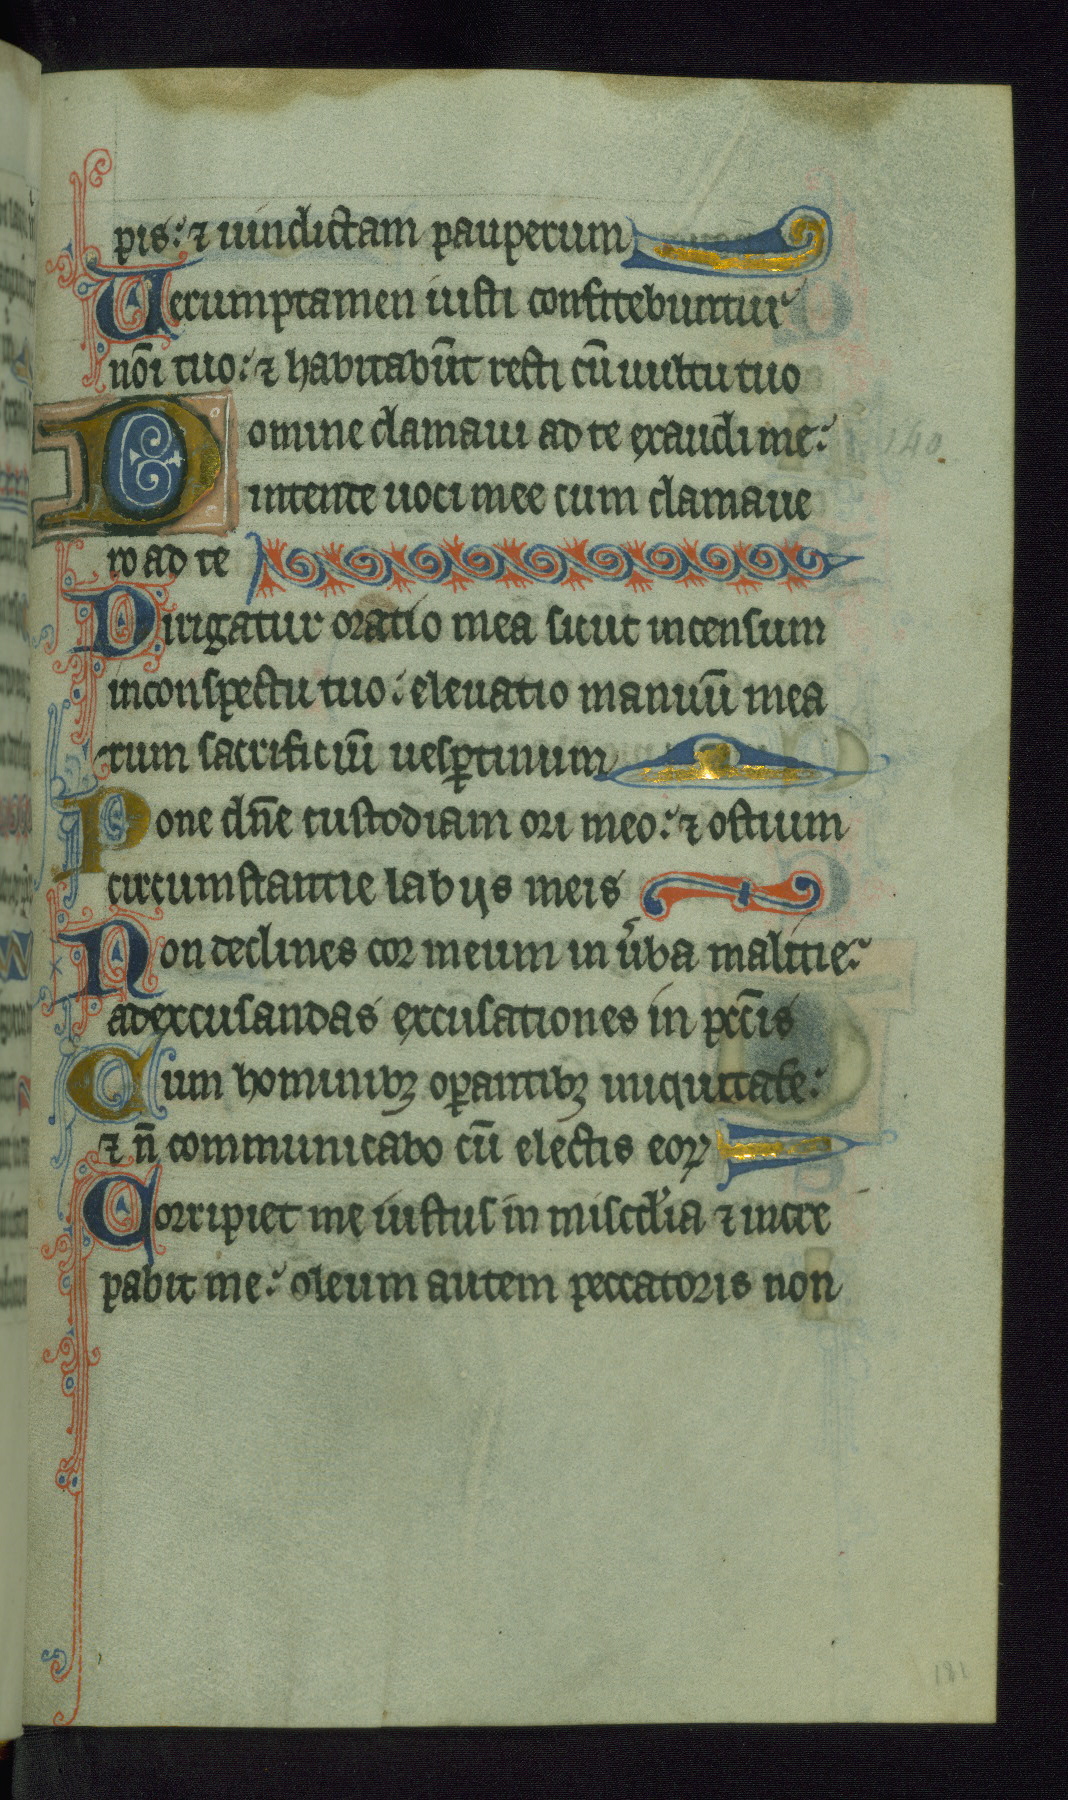 pis: ⁊ uindictam pauperum
Uerumptamen iusti confitebuntur
nōi tuo: ⁊ habitabūt recti cū uultu tuo
Domine clamaui ad te exaudi me:
140
intente uoci mee cum clamaue
ro ad te
Dirigatur oratio mea sicut incensum
in conspectu tuo: eleuatio manuū mea
rum sacrificiū uesꝑtinum
Pone dn̄e custodiam ori meo: ⁊ ostium
circumstantie labijs meis
Non declines cor meum in u̾ba malitie:
ad excusandas excusationes in pcc̄is
Cum hominibꝫ oꝑantibꝫ iniquitatē:
⁊ n̄ communicabo cū electis eoꝝ
Corripiet me iustus in miscd̾ia ⁊ incre
pabit me: oleum autem peccatoris non
181